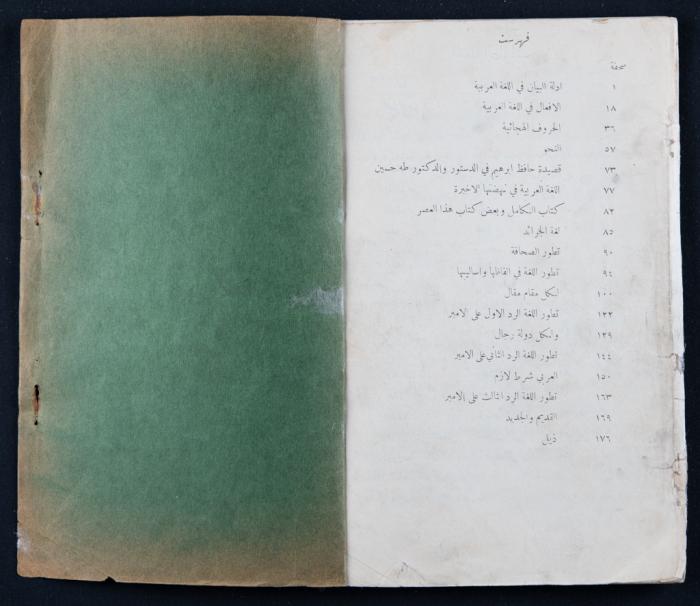 فهرست
صحفة
١ ادلة البيان في اللغة العربية
١٨ الافعال في اللغة العربية
٣٦ الحروف الهجائية
٥٧ النحو
٧٣ قصيدة حافظ ابرهيم في الدستور والدكتور طه حسين
٧٧ اللغة العربية في نهضتها الاخيرة
٨٢ كتاب الكامل وبعض كتاب هذا العصر
٨٥ لغة الجرائد
٩٠ تطور الصحافة
٩٤ تطور اللغة في الفاظها واساليبها
١٠٠ لكل مقام مقال
١٢٢ تطور اللغة الرد الاول على الامير
١٣٩ ولكل دولة رجال
١٤٤ تطور اللغة الرد الثاني على الامير
١٥٠ العربي شرط لازم
١٦٣ تطور اللغة الرد الثالث على الامير
١٦٩ القديم والجديد
١٧٦ ذيل